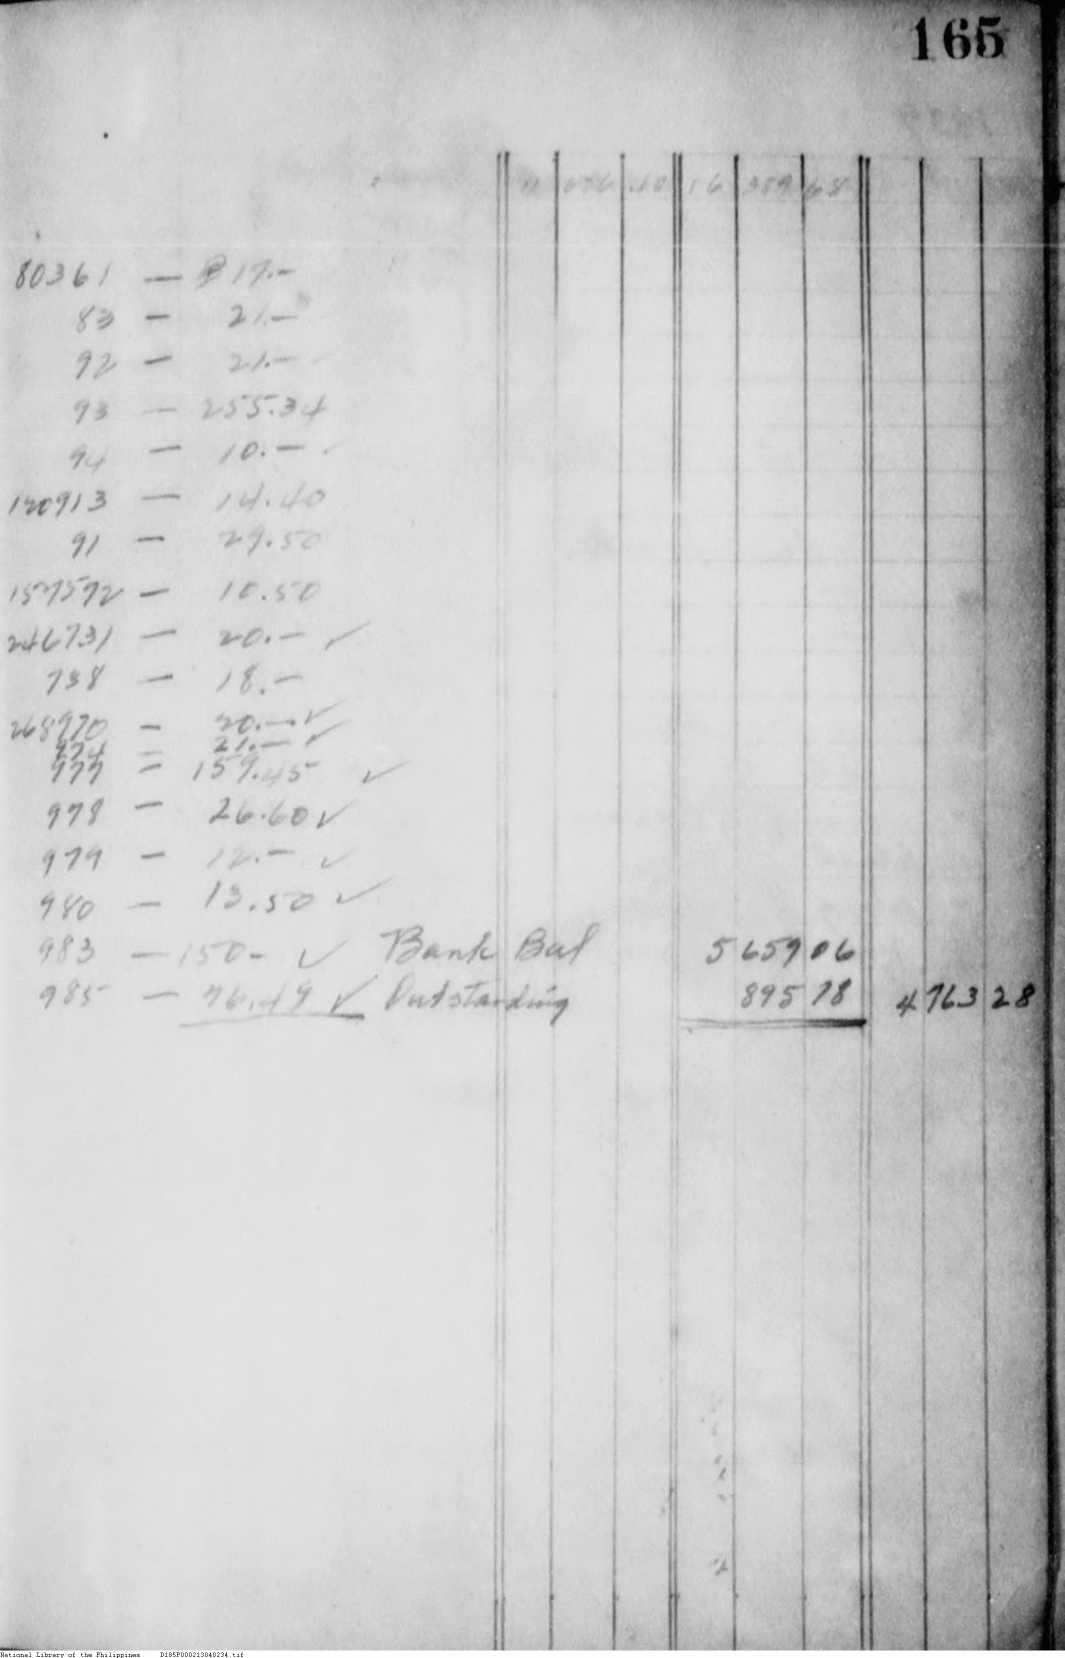 165
16 389 68
80361 — ₱ 17.—
83 — 21.—
92 — 21.—
93 — 255.34
94 — 10.—
120913 — 14.40
91 — 29.50
157572 — 10.50
246731 — 20.— ✓
738 — 18.—
268970 — 20.— ✓
974 — 21.— ✓
977 — 159.45 ✓
978 — 26.60 ✓
979 — 12.— ✓
980 — 13.50 ✓
983 — 150— ✓ Bank Bal 5 659 06
985 — 76.49 ✓ Outstanding 895 78 4 763 28
National Library of the Philippines D185P000213040234.tif